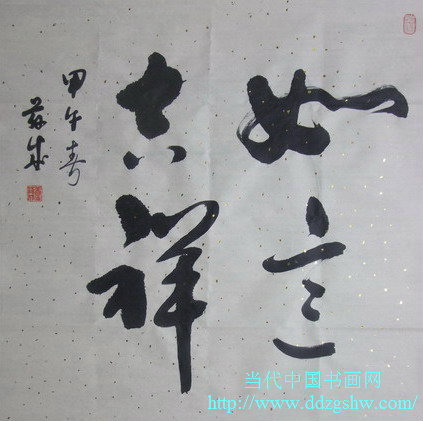 如意
吉祥
甲午春
当代中国书画网
http://www.ddzgshw.com/